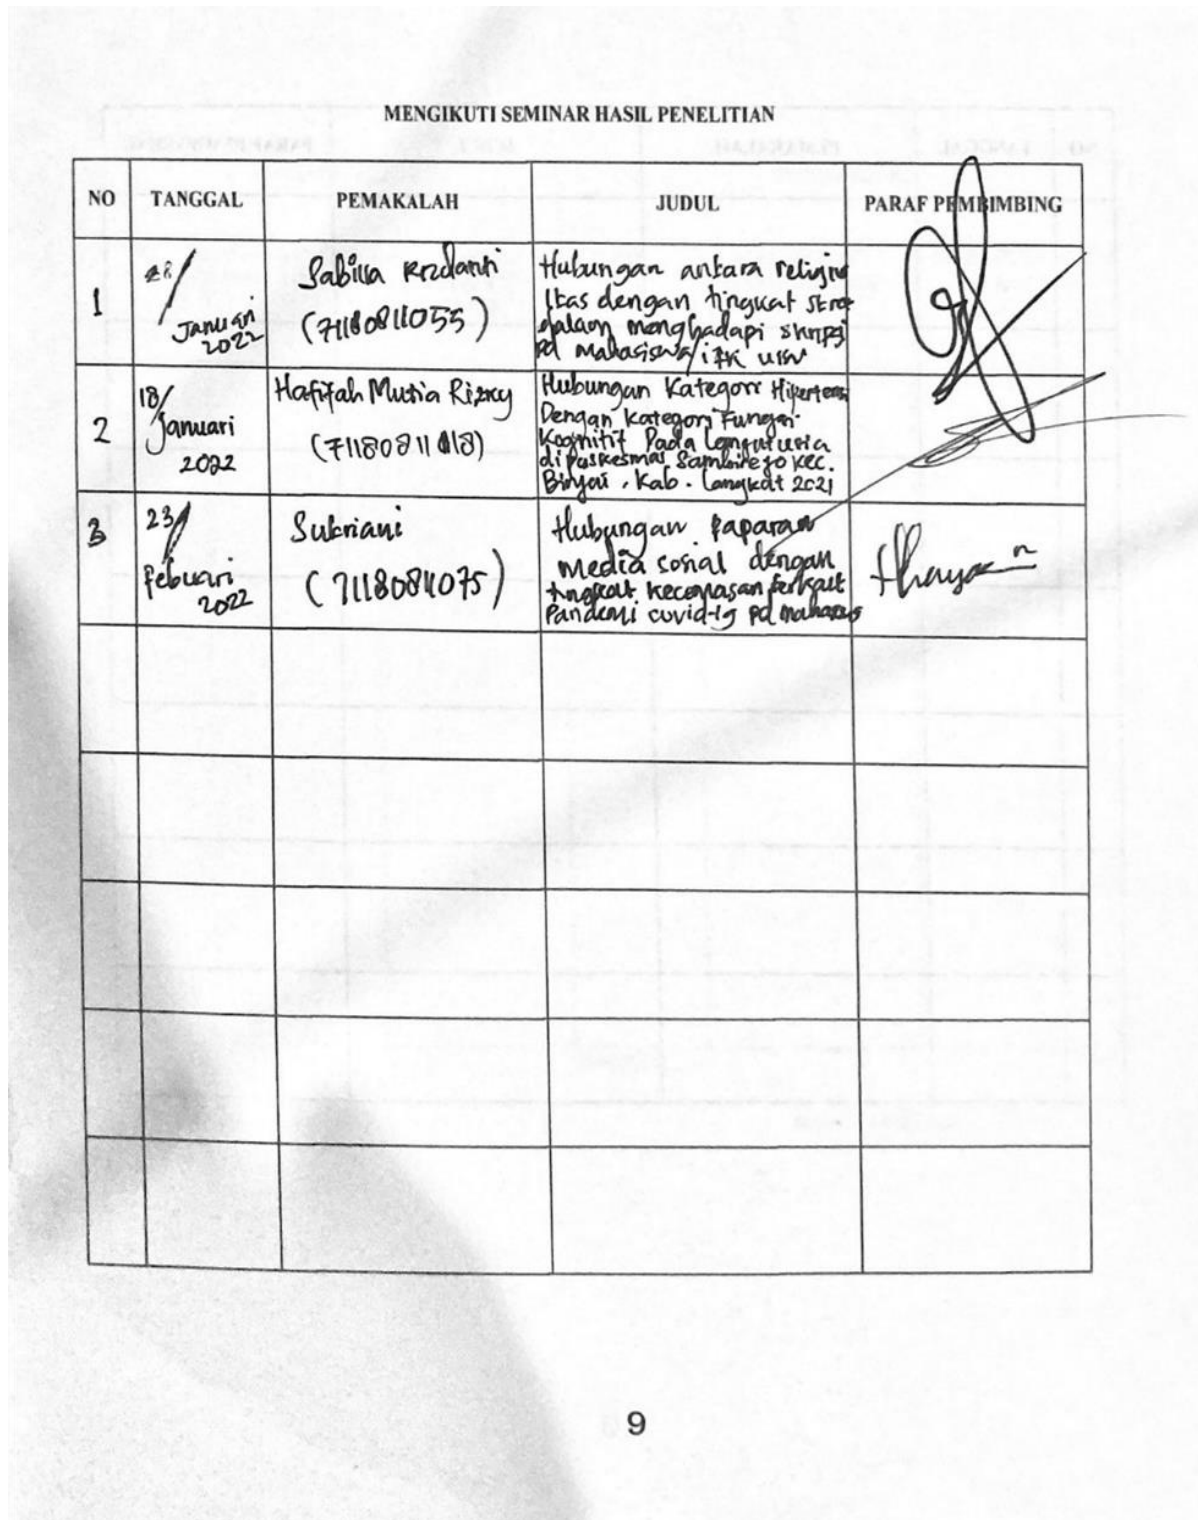 MENGIKUTI SEMINAR HASIL PENELITIAN
NO TANGGAL PEMAKALAH JUDUL PARAF PEMBIMBING
1
Januari
2022
Sabilla
(71180811055)
Hubungan antara religiu
itas dengan tingkat
dalam menghadapi skripsi
pd mahasiswa
2
18/
Januari
2022
Hafifah Mutia Rizky
Hubungan Kategori Hipertensi
Dengan Kategori Fungsi
Kognitif Pada
di puskesmas Sambirejo Kec.
Binjai, Kab. Langkat 2021
3
23/
Febuari
2022
Sukriani
Hubungan paparan
media sosial dengan
tingkat kecemasan terkait
Pandemi covid-19 pd mahasis
9